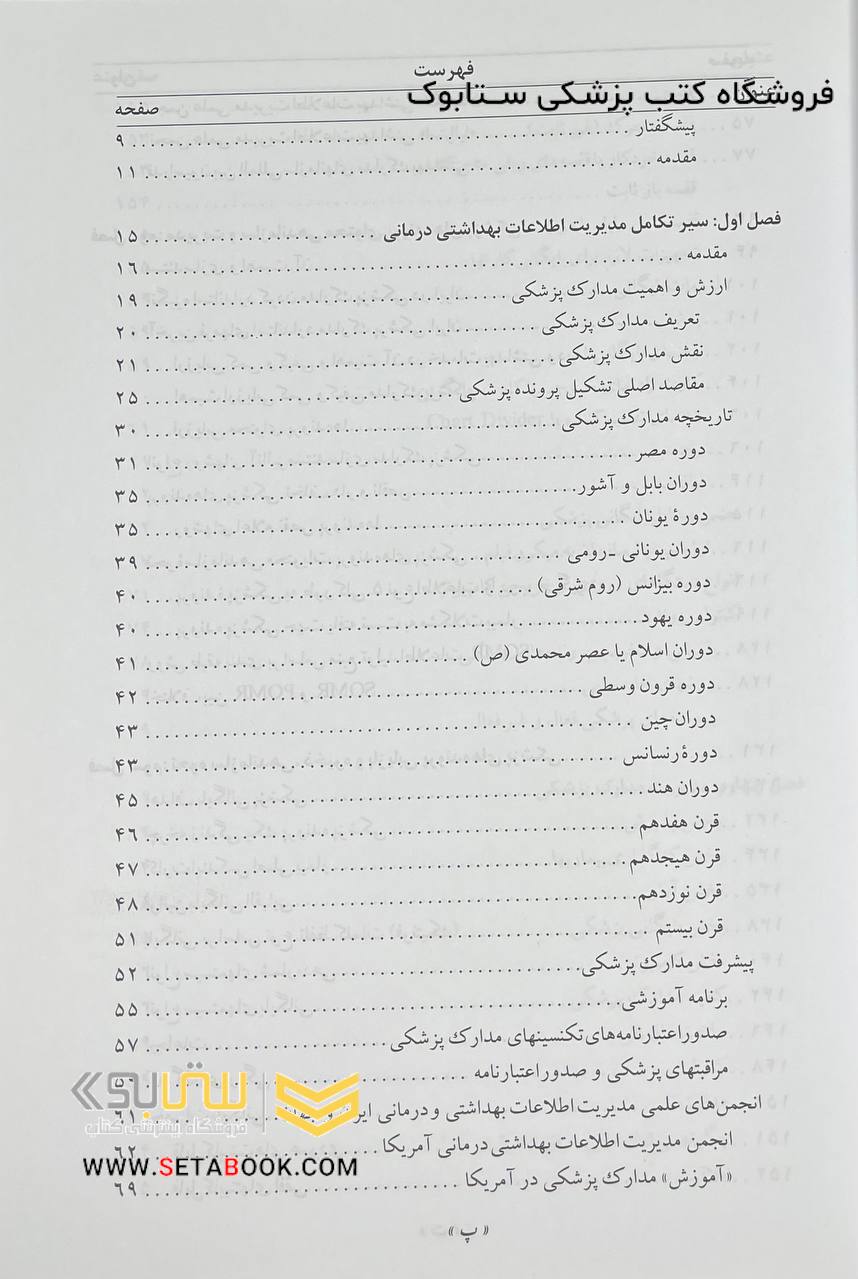 فهرست
فروشگاه کتب پزشکی ستابوک
صفحه
پیشگفتار ۹
مقدمه ۱۱
فصل اول: سیر تکامل مدیریت اطلاعات بهداشتی درمانی ۱۵
مقدمه ۱۶
ارزش و اهمیت مدارک پزشکی ۱۹
تعریف مدارک پزشکی ۲۰
نقش مدارک پزشکی ۲۱
مقاصد اصلی تشکیل پرونده پزشکی ۲۵
تاریخچه مدارک پزشکی ۳۰
دوره مصر ۳۱
دوران بابل و آشور ۳۵
دورۀ یونان ۳۵
دوران یونانی -رومی ۳۹
دوره بیزانس (روم شرقی) ۴۰
دوره یهود ۴۰
دوران اسلام یا عصر محمدی (ص) ۴۱
دوره قرون وسطی ۴۲
دوران چین ۴۳
دورۀ رنسانس ۴۳
دوران هند ۴۵
قرن هفدهم ۴۶
قرن هیجدهم ۴۷
قرن نوزدهم ۴۸
قرن بیستم ۵۱
پیشرفت مدارک پزشکی ۵۲
برنامه آموزشی ۵۵
صدور اعتبارنامه‌های تکنسینهای مدارک پزشکی ۵۷
مراقبتهای پزشکی و صدور اعتبارنامه
انجمن‌های علمی مدیریت اطلاعات بهداشتی و درمانی ۶۱
انجمن مدیریت اطلاعات بهداشتی درمانی آمریکا ۶۲
«آموزش» مدارک پزشکی در آمریکا ۶۹
ستابوک
فروشگاه اینترنتی کتاب
WWW.SETABOOK.COM
« پ »